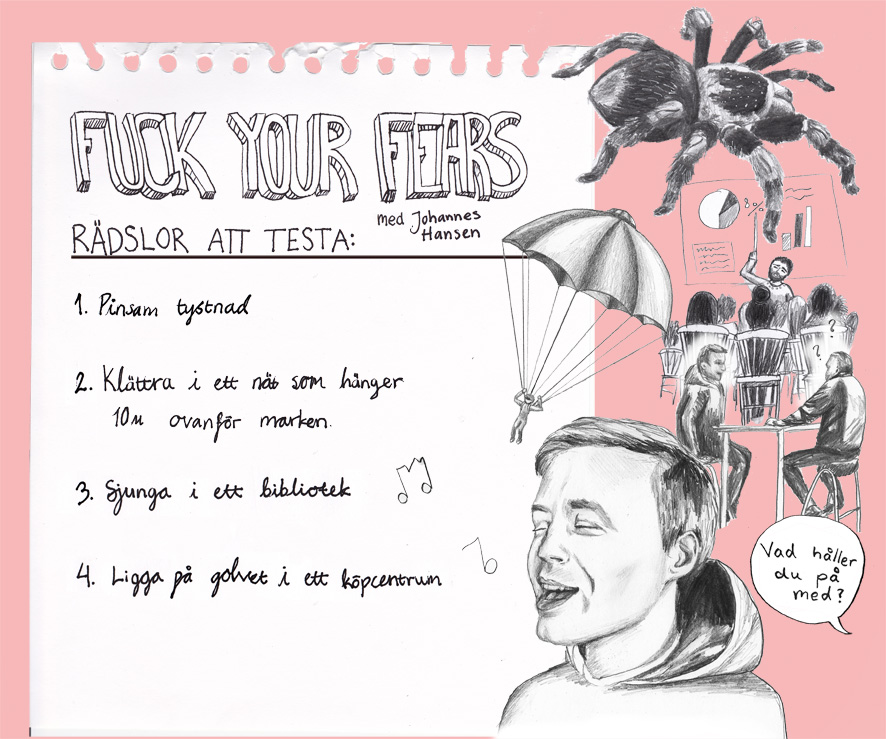 FUCK YOUR FEARS
med Johannes
Hansen
RÄDSLOR ATT TESTA:
1. Pinsam tystnad
2. Klättra i ett nät som hänger
10m ovanför marken.
3. Sjunga i ett bibliotek
4. Ligga på golvet i ett köpcentrum
8%
? ?
Vad håller
du på
med?